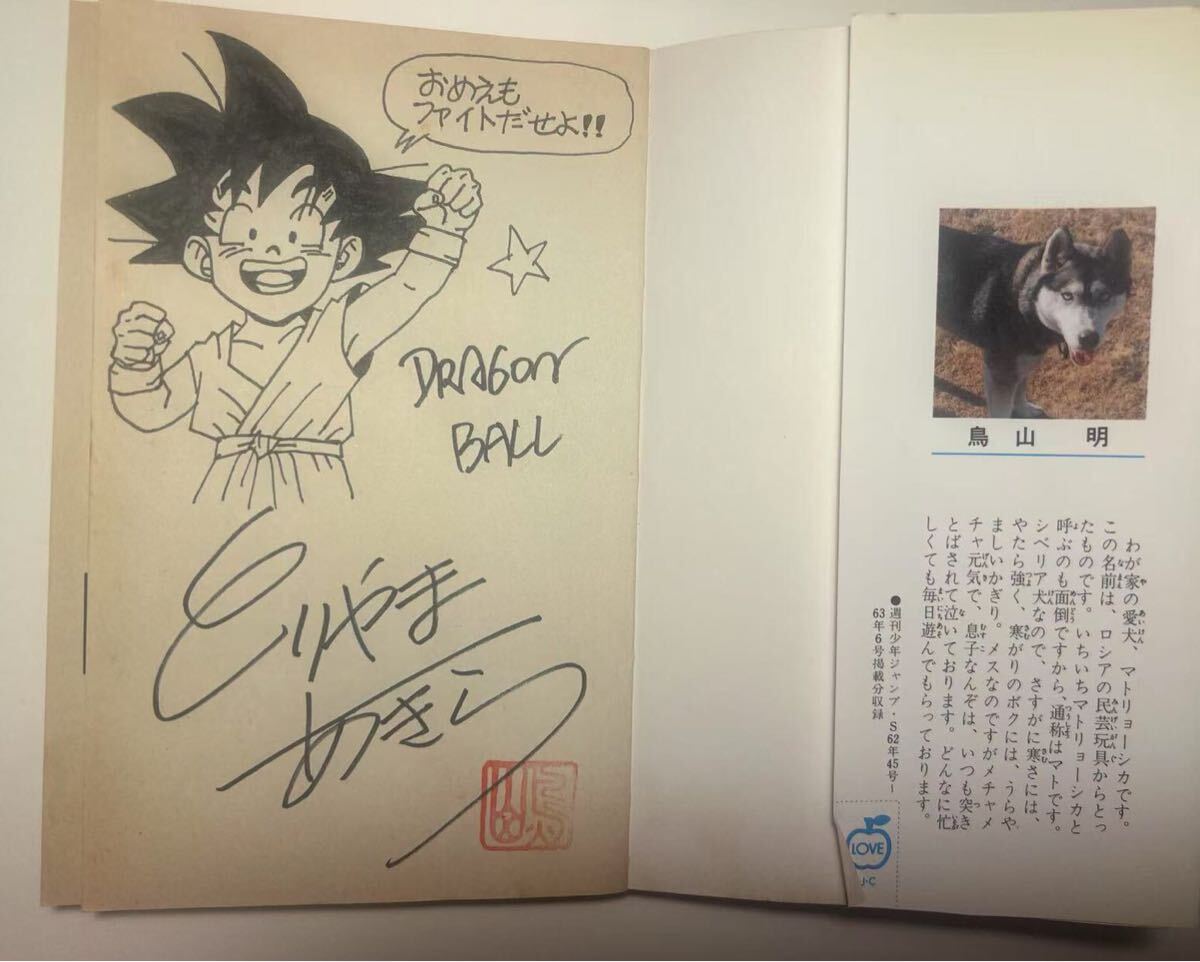 おめえも
ファイトだせよ!!
DRAGON
BALL
とりやま
あきら
鳥山 明
わが家の愛犬、マトリョーシカです。
この名前は、ロシアの民芸玩具からとっ
たものです。いちいちマトリョーシカと
呼ぶのも面倒ですから、通称はマトです。
シベリア犬なので、さすがに寒さには、
やたら強く、寒がりのボクには、うらや
ましいかぎり。メスなのですがメチャメ
チャ元気で、息子なんぞは、いつも突き
とばされて泣いております。どんなに忙
しくても毎日遊んでもらっております。
●週刊少年ジャンプ・S62年45号~
63年6号掲載分収録
LOVE
J・C